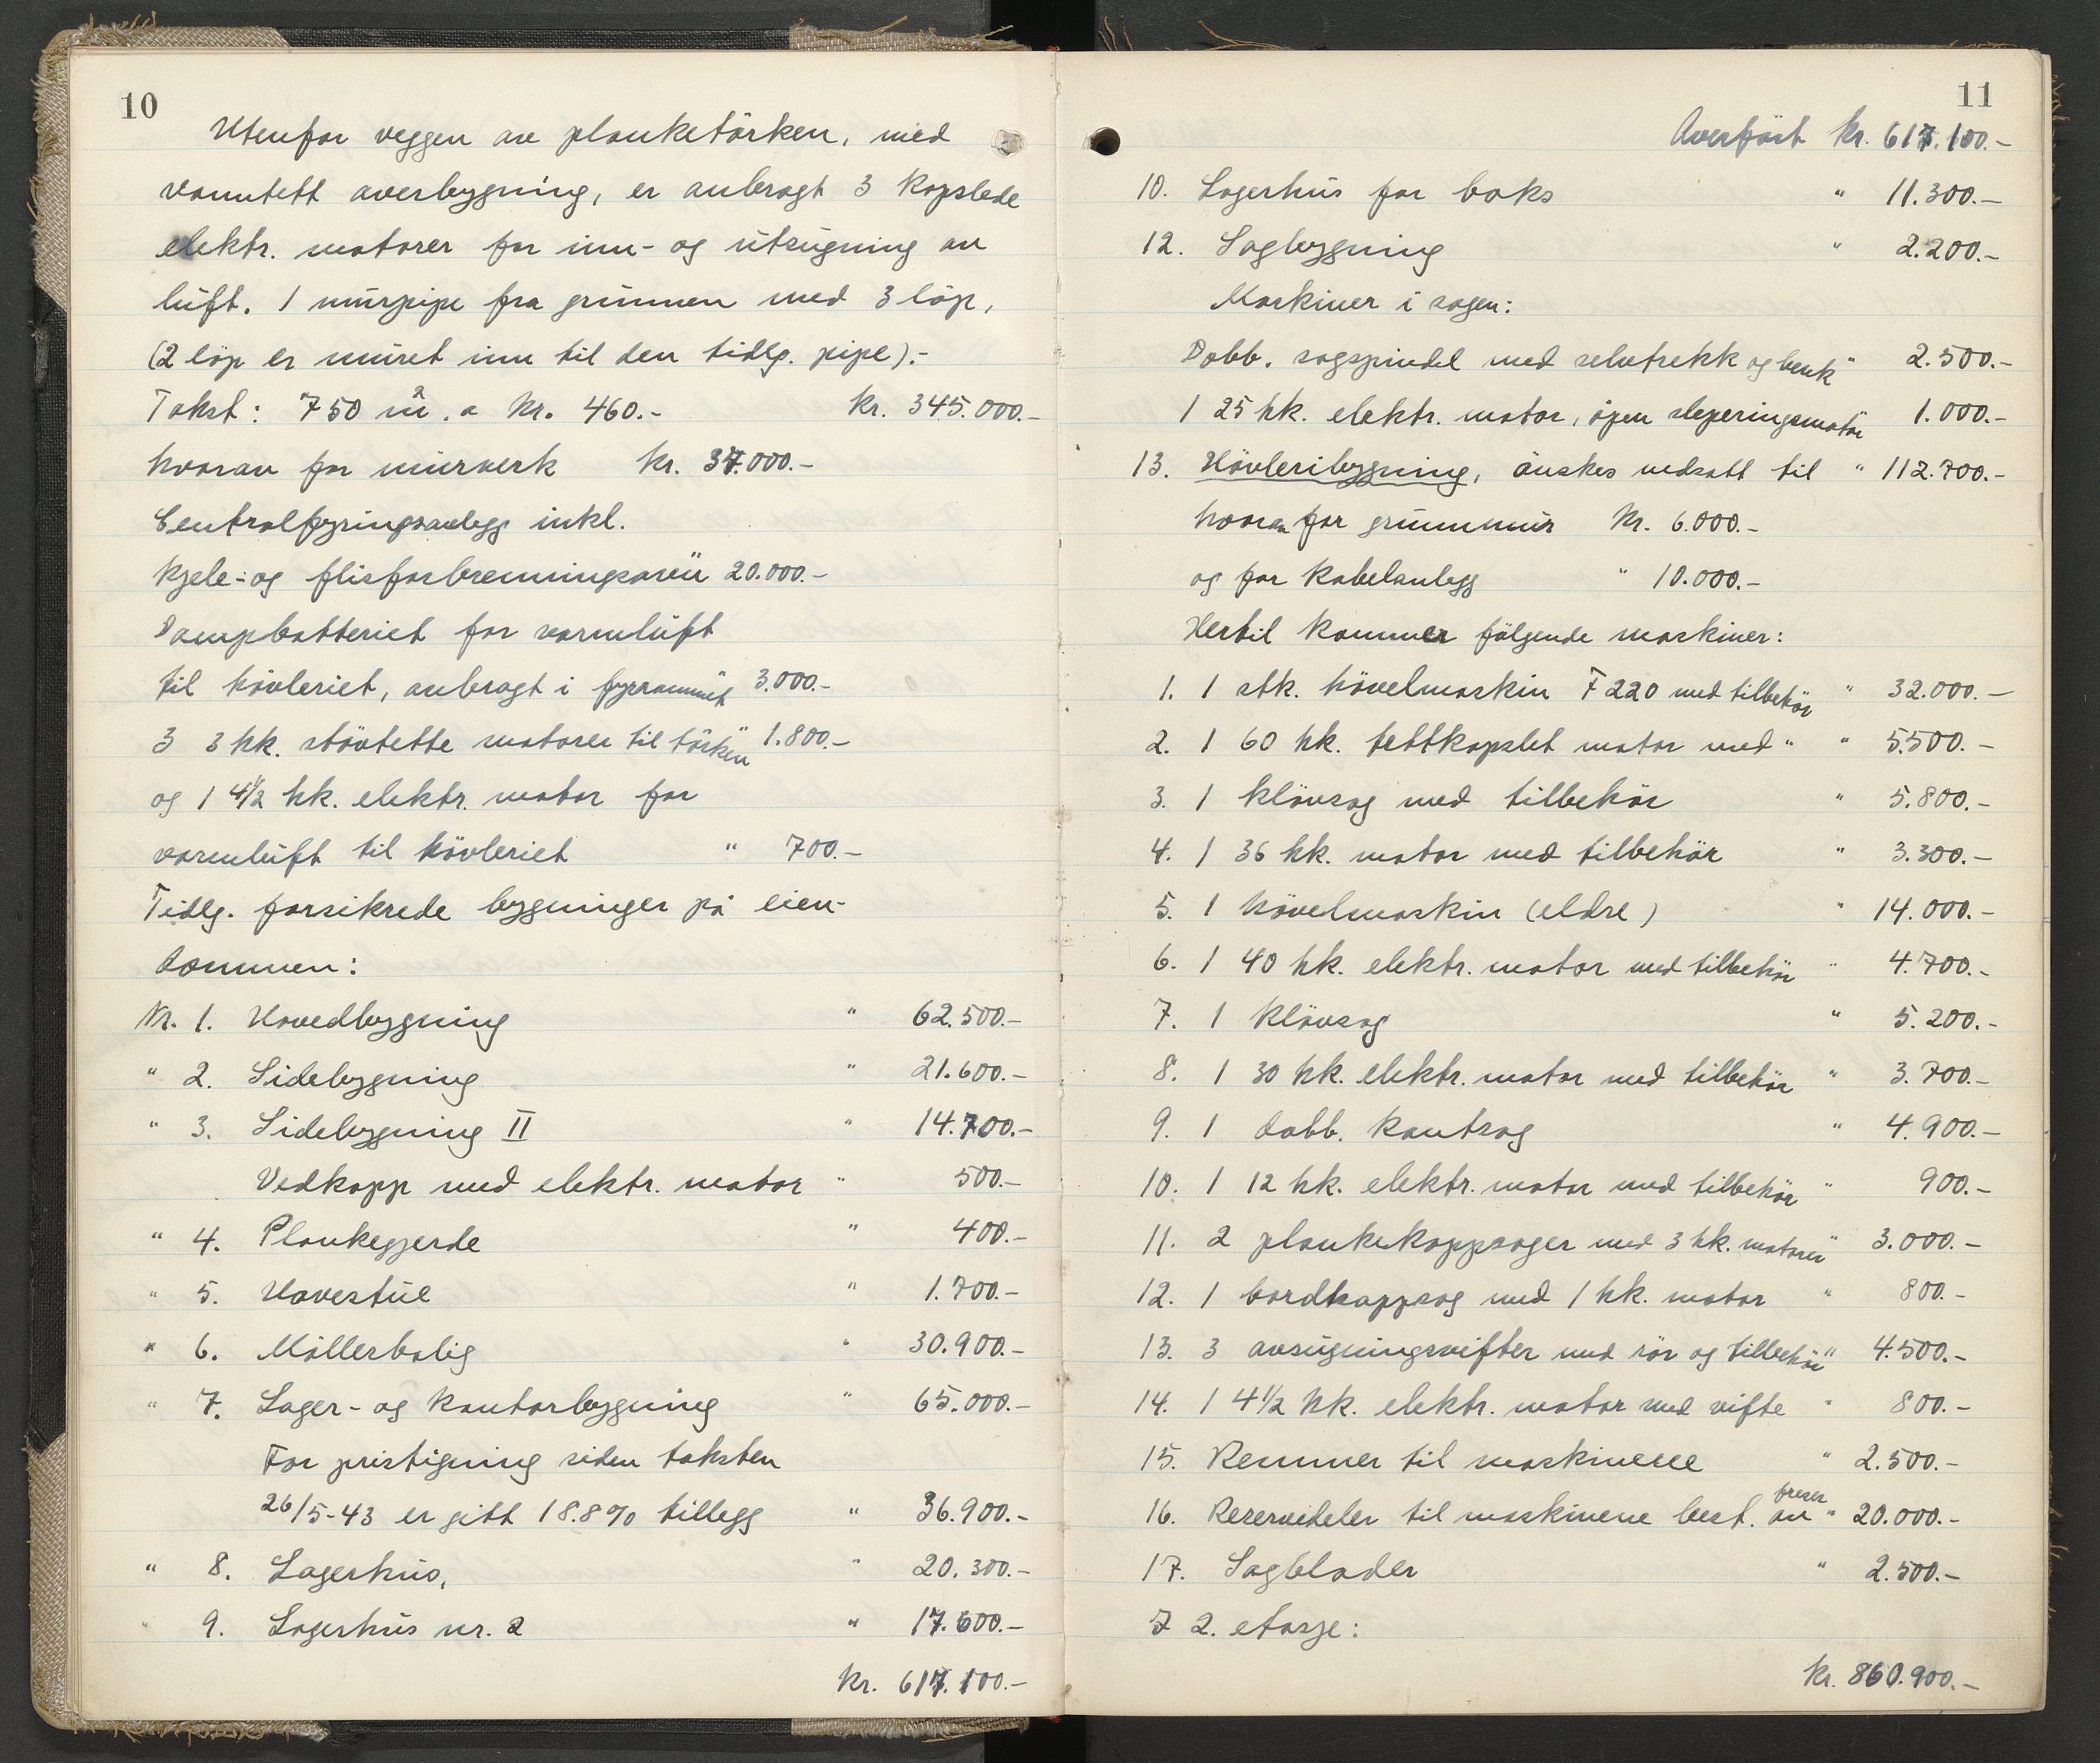 10
Utenfor veggen av planketörken, med
vanntett overbygning, er anbragt 3 kapslede
elektr. motorer for inn- og utsugning av
luft. 1 murpipe fra grunnen med 3 löp,
(2 löp er muret inn til den tidlg. pipe).-
Takst: 750 m². a kr. 460.- kr. 345.000.-
hvorav for murverk kr. 37.000.-
Centralfyringsanlegg inkl.
kjele- og flisforbrenningsovn " 20.000.-
Dampbatteriet for varmluft
til høvleriet, anbragt i fyrrommet " 3.000.-
3 3 hk. stövtette motorer til törken " 1.800.-
og 1 4½ hk. elektr. motor for
varmluft til hövleriet " 700.-
Tidlg. forsikrede bygninger på eien-
dommen:
Nr. 1. Hovedbygning " 62.500.-
" 2. Sidebygning " 21.600.-
" 3. Sidebygning II " 14.700.-
Vedkapp med elektr. motor " 500.-
" 4. Plankegjerde " 400.-
" 5. Havestue " 1.700.-
" 6. Möllerbolig " 30.900.-
" 7. Lager- og kontorbygning " 65.000.-
For pristigning siden taksten
26/5-43 er gitt 18.8% tillegg " 36.900.-
" 8. Lagerhus, " 20.300.-
" 9. Lagerhus nr. 2 " 17.600.-
kr. 617.100.-
11
Overfört kr. 617.100.-
10. Lagerhus for koks " 11.300.-
12. Sagbygning " 2.200.-
Maskiner i sagen:
Dobb. sagspindel med selvtrekk og benk " 2.500.-
1 25 hk. elektr. motor, åpen sleperingsmotor 1.000.-
13. Hövleribygning, önskes nedsatt til " 112.700.-
hvorav for grunnmur kr. 6.000.-
og for kabelanlegg " 10.000.-
Hertil kommer fölgende maskiner:
1. 1 stk. hövelmaskin F 220 med tilbehör " 32.000.-
2. 1 60 hk. tettkapslet motor med " " 5.500.-
3. 1 klövsag med tilbehör " 5.800.-
4. 1 36 hk. motor med tilbehör " 3.300.-
5. 1 hövelmaskin (eldre) " 14.000.-
6. 1 40 hk. elektr. motor med tilbehör " 4.700.-
7. 1 klövsag " 5.200.-
8. 1 30 hk. elektr. motor med tilbehör " 3.700.-
9. 1 dobb. kantsag " 4.900.-
10. 1 12 hk. elektr. motor med tilbehör " 900.-
11. 2 plankekappsager med 3 hk. motorer " 3.000.-
12. 1 bordkappsag med 1 hk. motor " 800.-
13. 3 avsugningsvifter med rör og tilbehör " 4.500.-
14. 1 4½ hk. elektr. motor med vifte " 800.-
15. Remmer til maskinene " 2.500.-
16. Reservedeler til maskinene best. av freser " 20.000.-
17. Sagblader " 2.500.-
I 2. etasje:
kr. 860.900.-